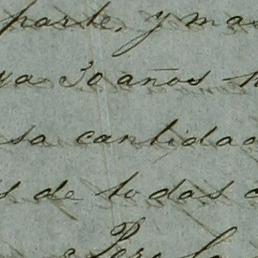 parte, y mas
ya 30 años
sa cantidad
s de todas